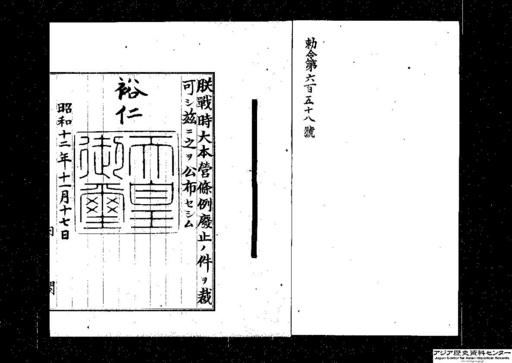 勅令第六百五十八號
朕戰時大本營條例廢止ノ件ヲ裁
可シ茲ニ之ヲ公布セシム
裕仁
天皇
御璽
昭和十二年十一月十七日
内閣
アジア歴史資料センター
Japan Center for Asian Historical Records